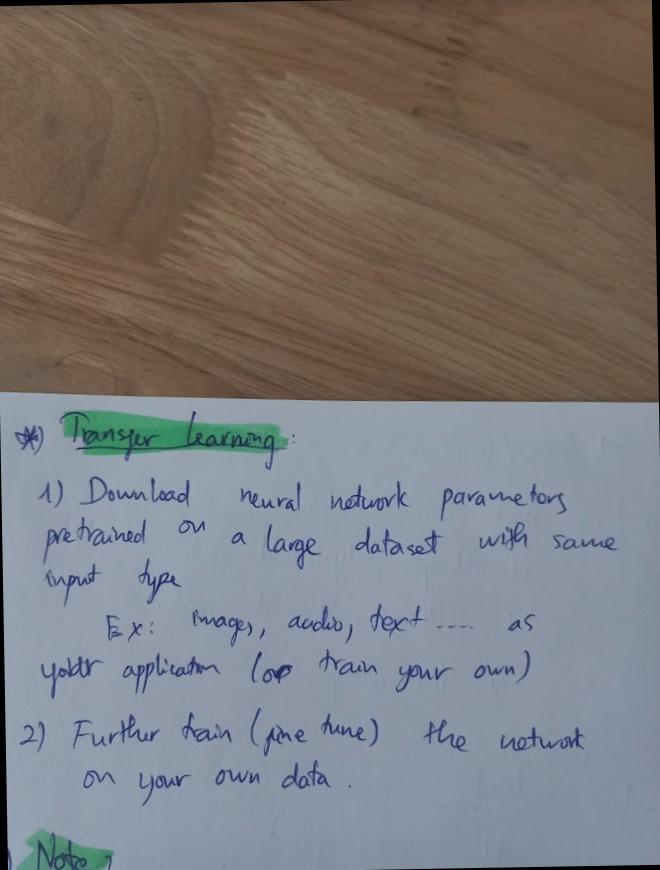 *) Transfer learning:
1) Download neural network parameters
pretrained on a large dataset with same
input type
Ex: images, audio, text .... as
your application (or train your own)
2) Further train (fine tune) the network
on your own data.
) Note